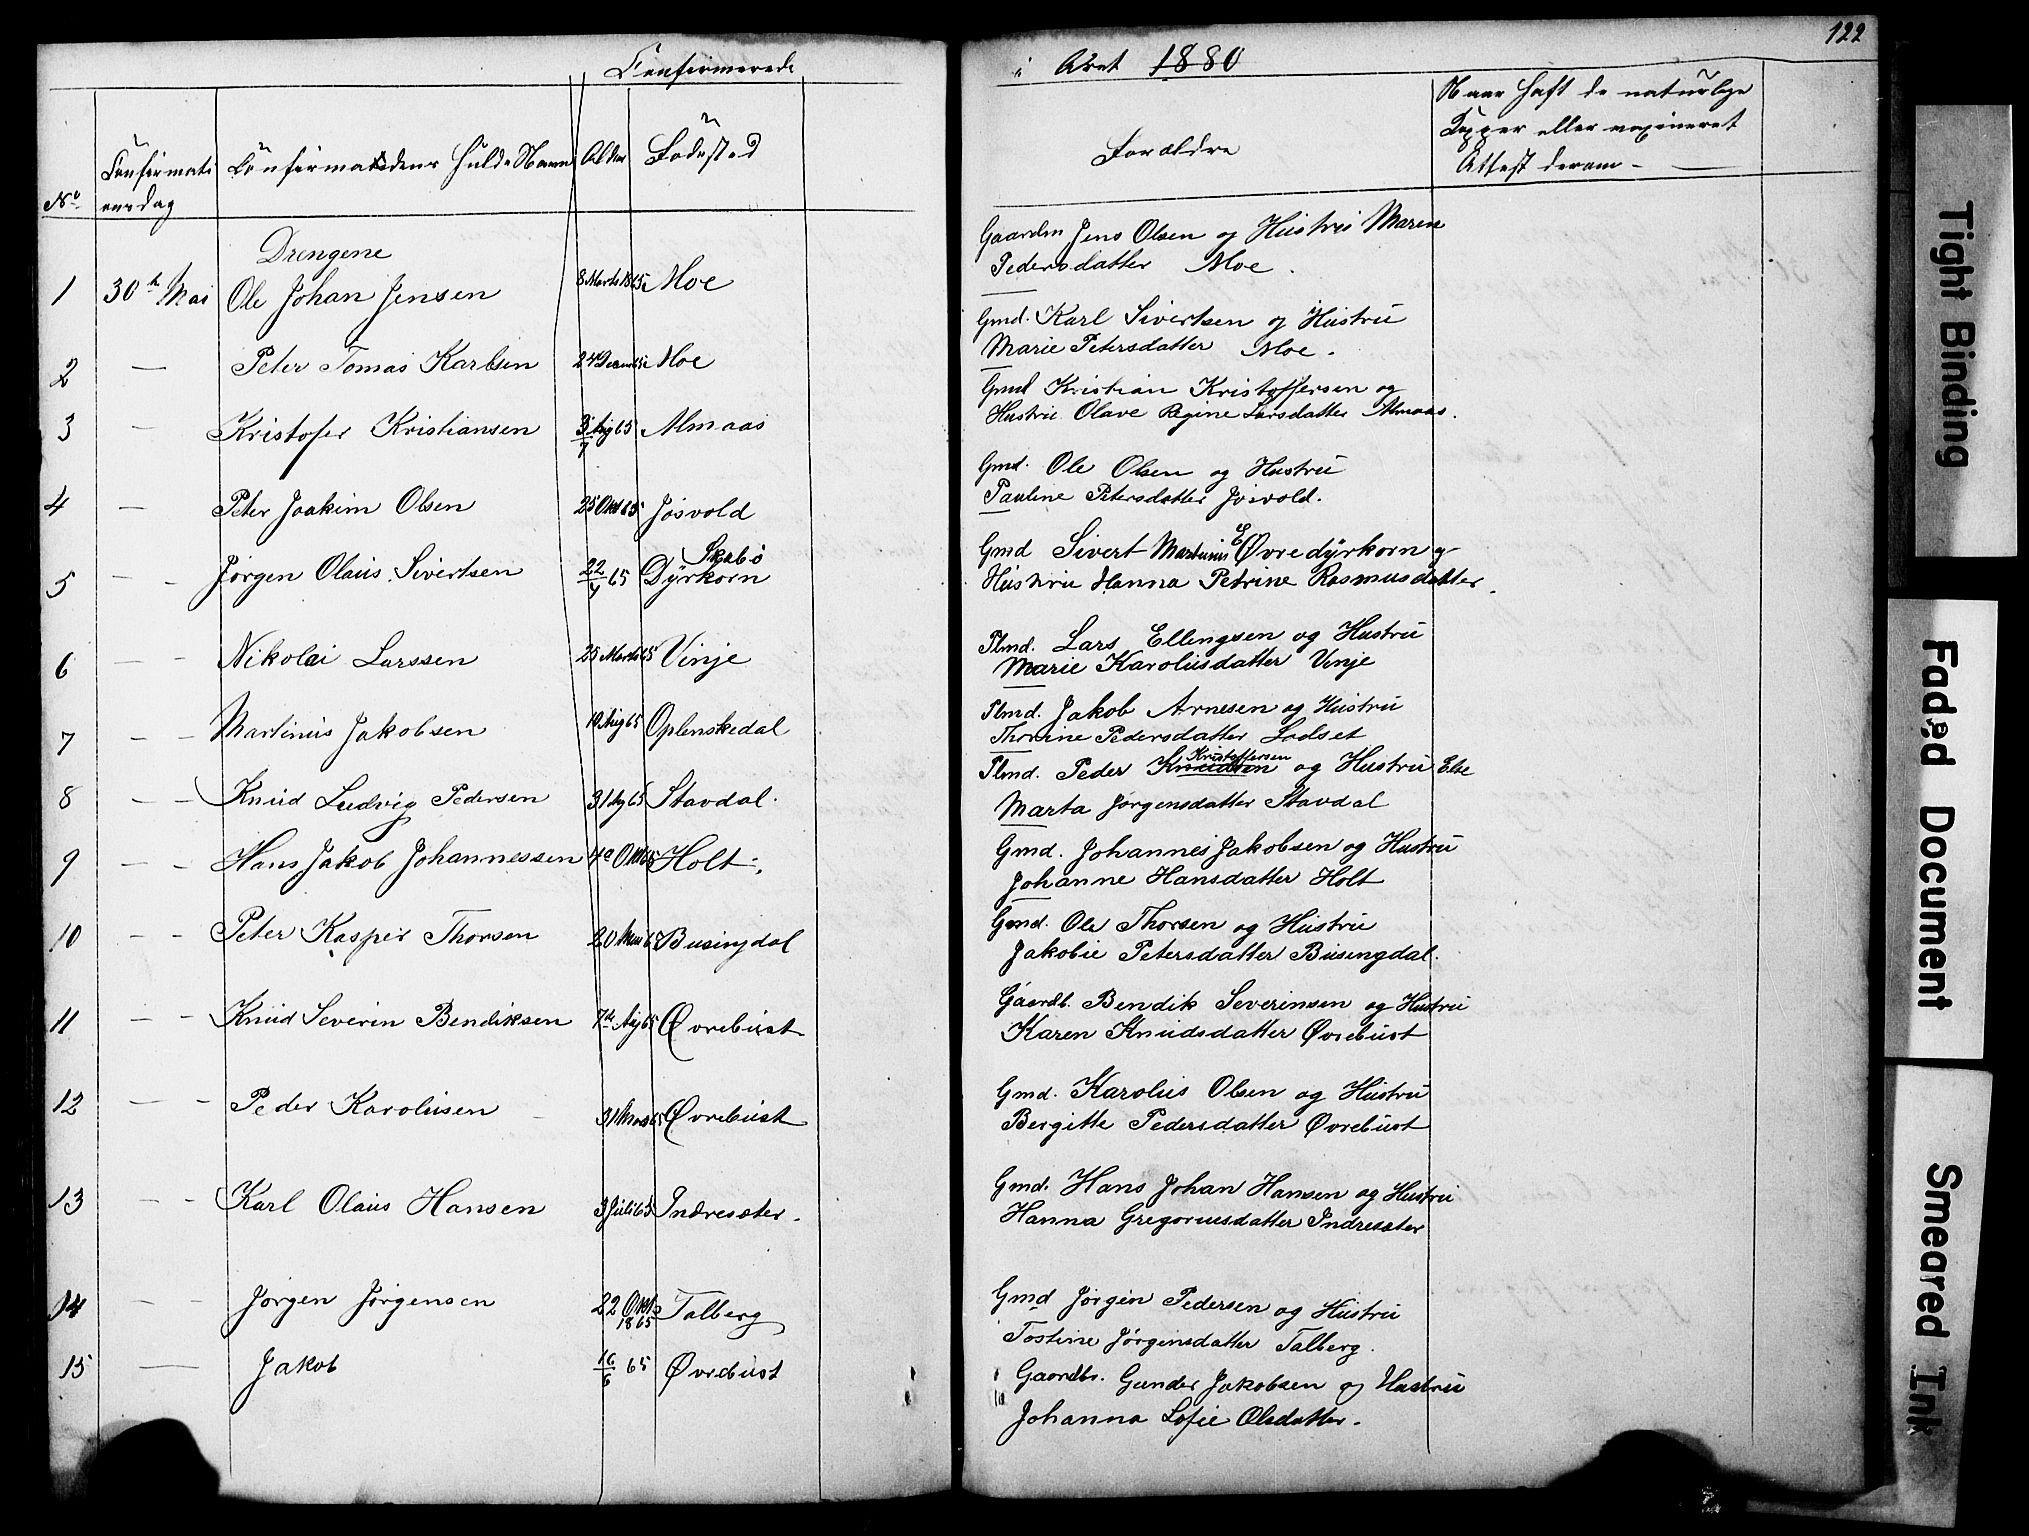 Confirmerede
i Aaret 1880
122
No
Confirmati
onsdag
Confirmandens fulde Navn
Alder
Fødested
Forældre
Naar haft de naturlige
Kopper eller vaxineret
Attest derom -
Drengene
1 30te Mai Ole Johan Jensen 8 Marts 1865 Moe
Gaardm Jens Olsen og Hustru Maren
Pedersdatter Moe.
2 — Peter Tomas Karlsen 24 Decem 65 Moe
Gmd. Karl Sivertsen og Hustru
Marie Petersdatter Moe.
3 — Kristofer Kristiansen Aug 65 Almaas
Gmd Kristian Kristoffersen og
Hustru Olave Regine Larsdatter Almaas.
4 — Peter Joakim Olsen 25 Okt 65 Jøsvold
Gmd. Ole Olsen og Hustru
Pauline Petersdatter Jøsvold.
Skabø
5 — — Jørgen Olaus Sivertsen 22/4 65 Dyrkorn
Gmd Sivert Martinus E Øvredyrkorn og
Hustru Hanna Petrine Rasmusdatter.
6 — — Nikolai Larssen 25 Marts 65 Vinje
Plmd. Lars Ellengsen og Hustru
Marie Karolusdatter Vinje
7 — — Martinus Jakobsen 10 Aug 65 Oplenskedal
Plmd. Jakob Arnesen og Hustru
Thorine Pedersdatter Lødset
Kristoffersen
8 — — Knud Ludvig Pedersen 31 Ag 65 Stavdal.
Plmd. Peder Knudsen og Hustru Else
Marta Jørgensdatter Stavdal
9 — — Hans Jakob Johannessen 4de Okt 65 Holt.
Gmd. Johannes Jakobsen og Hustru
Johanne Hansdatter Holt
10 — — Peter Kasper Thorsen 20 Busingdal
Gmd. Ole Thorsen og Hustru
Jakobie Petersdatter Busingdal.
11 — — Knud Severin Bendiksen 7de Aug 65 Øvrebust
Gaardb. Bendik Severinsen og Hustru
Karen Knudsdatter Øvrebust
12 — — Peder Karolusen 31 65 Øvrebust
Gmd. Karolus Olsen og Hustru
Bergitte Pedersdatter Øvrebust
13 — — Karl Olaus Hansen 3 Juli 65 Indresæter.
Gmd. Hans Johan Hansen og Hustru
Hanna Gregoriusdatter Indresæter
14 — — Jørgen Jørgensen 22 Okt 1865 Talberg
Gmd Jørgen Pedersen og Hustru
Tostine Jørgensdatter Talberg.
15 — Jakob 16/6 65 Øvrebust
Gaardbr. Gunder Jakobsen og Hustru
Johanna Sofie Olsdatter.
Tight Binding
Faded Document
Smeared Ink